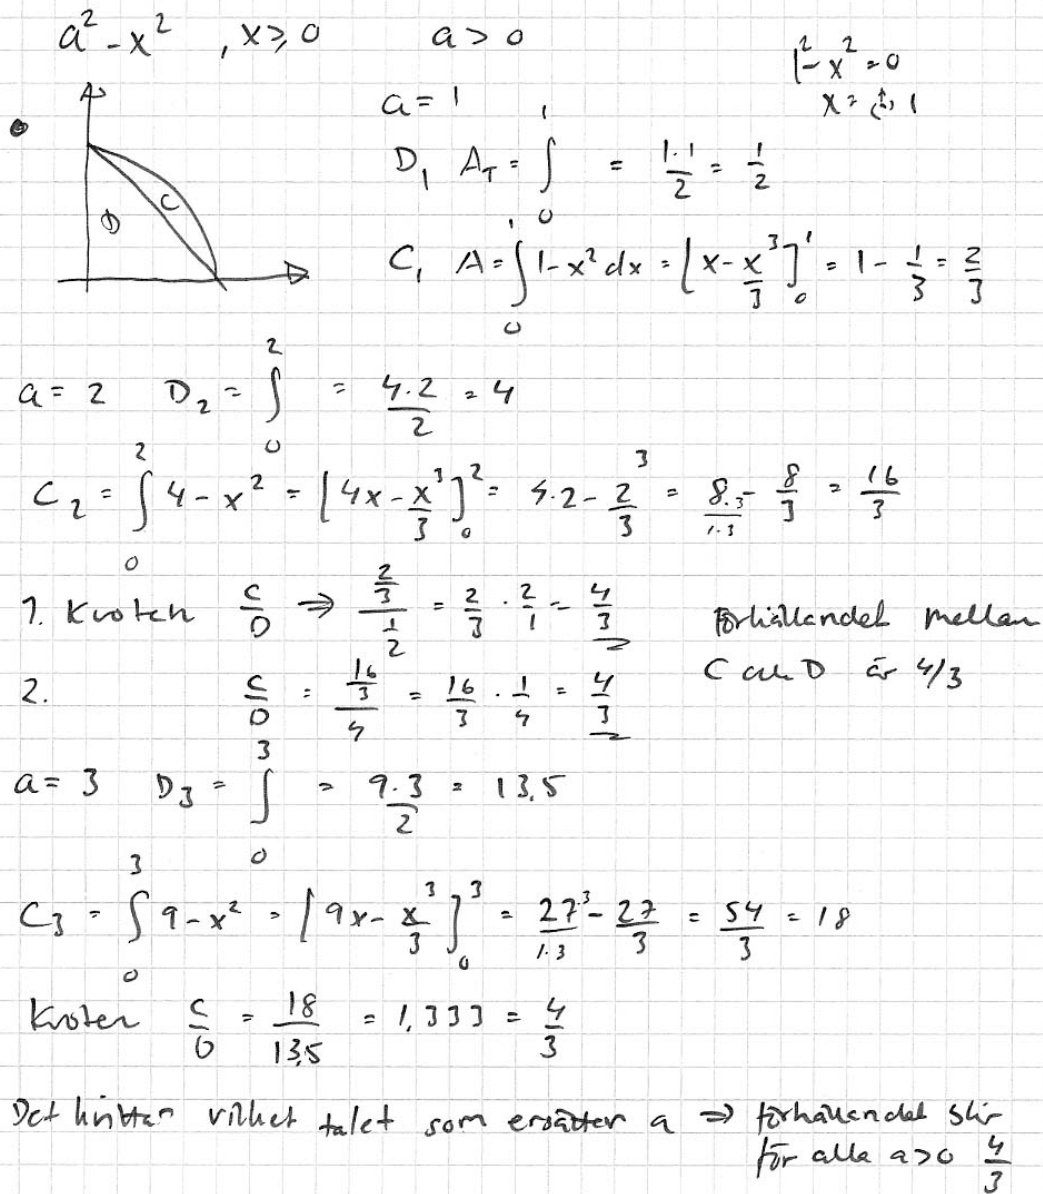 a² - x² , x ≥ 0 a > 0
1² - x² = 0
x = (±) 1
a = 1
D₁ A_T = ∫₀¹ = 1·1/2 = 1/2
D C
C₁ A = ∫₀¹ 1 - x² dx = [x - x³/3]₀¹ = 1 - 1/3 = 2/3
a = 2 D₂ = ∫₀² = 4·2/2 = 4
C₂ = ∫₀² 4 - x² = [4x - x³/3]₀² = 4·2 - 2³/3 = 8·3/1·3 - 8/3 = 16/3
1. Kvoten C/D ⇒ (2/3)/(1/2) = 2/3 · 2/1 = 4/3
Förhållandet mellan
C och D är 4/3
2. C/D = (16/3)/4 = 16/3 · 1/4 = 4/3
a = 3 D₃ = ∫₀³ = 9·3/2 = 13,5
C₃ = ∫₀³ 9 - x² = [9x - x³/3]₀³ = 27·3/1·3 - 27/3 = 54/3 = 18
Kvoten C/D = 18/13,5 = 1,333 = 4/3
Det vilket talet som ersätter a ⇒ förhållandet blir
för alla a>0 4/3